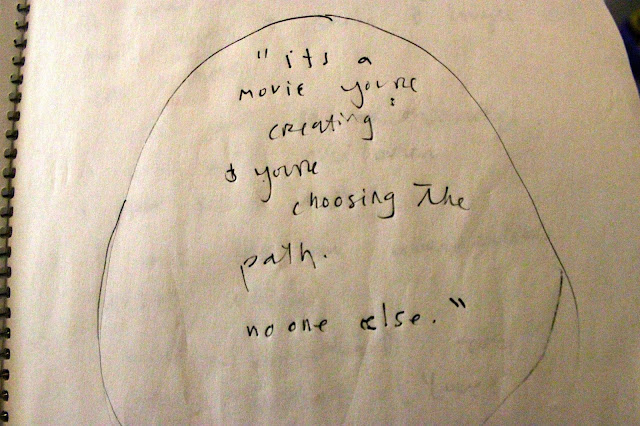 "its a
movie you're
creating
& you're
choosing The
path.
no one else."